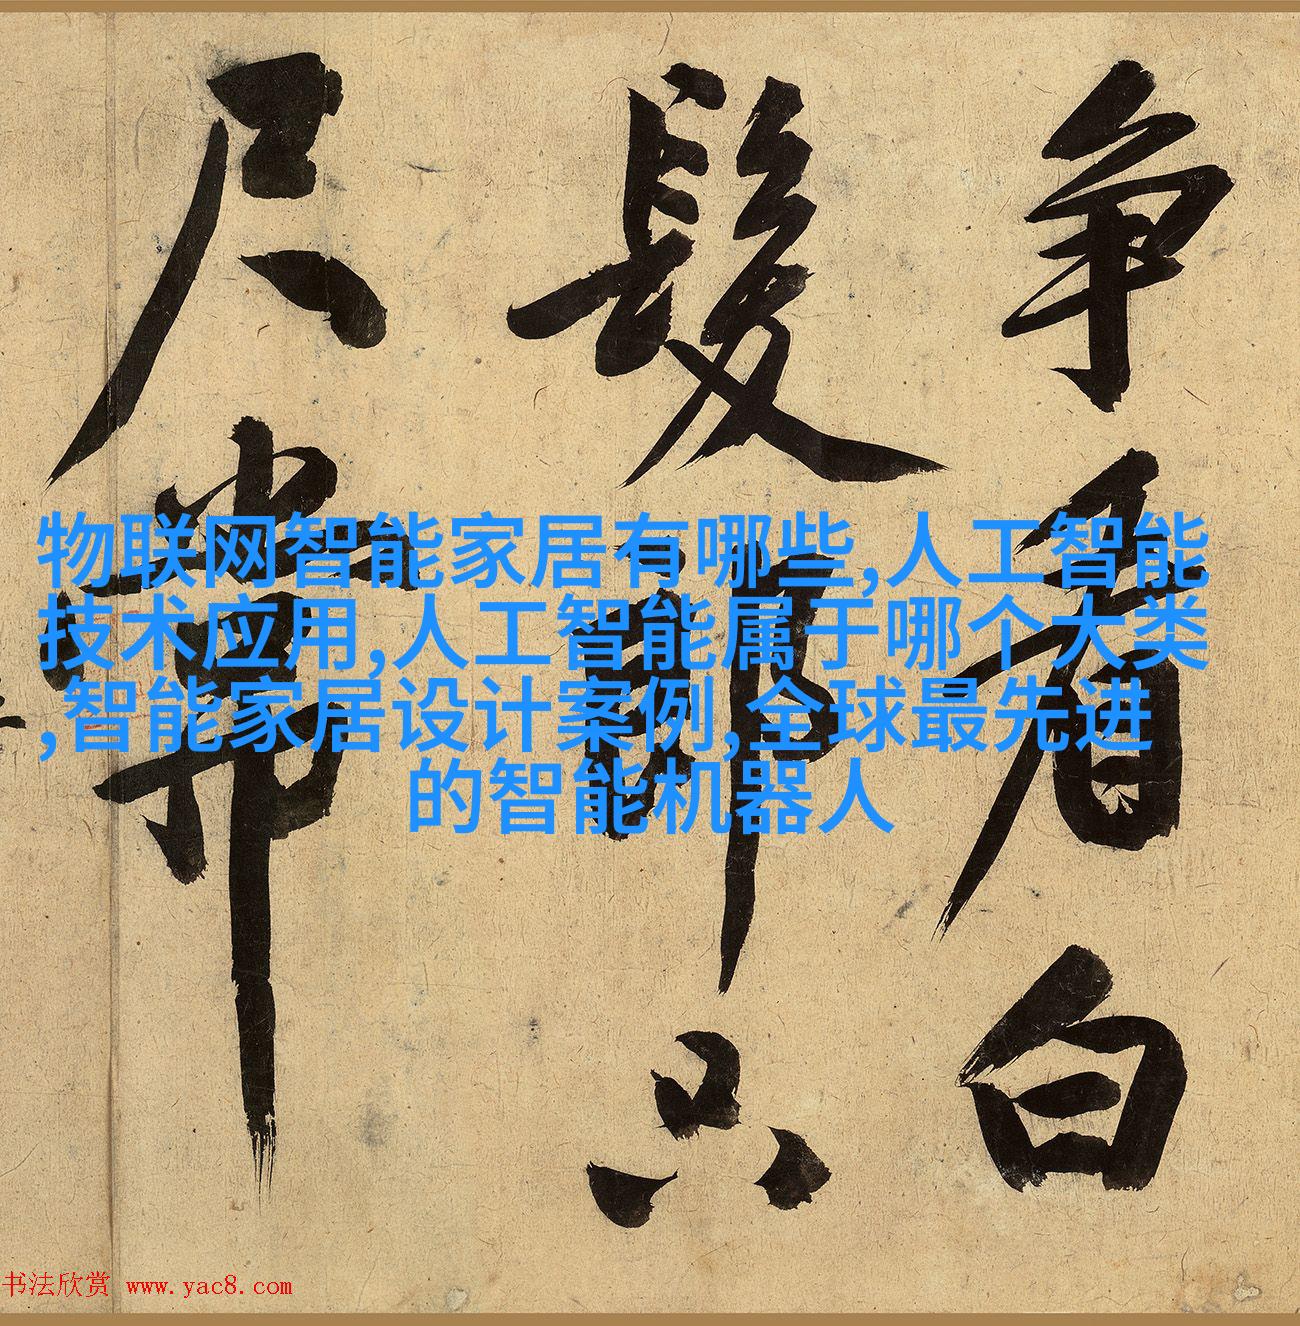 争看白
髮郎只
尺常
物联网智能家居有哪些,人工智能
技术应用,人工智能属于哪个大类
,智能家居设计案例,全球最先进
的智能机器人
书法欣赏 www.yac8.com